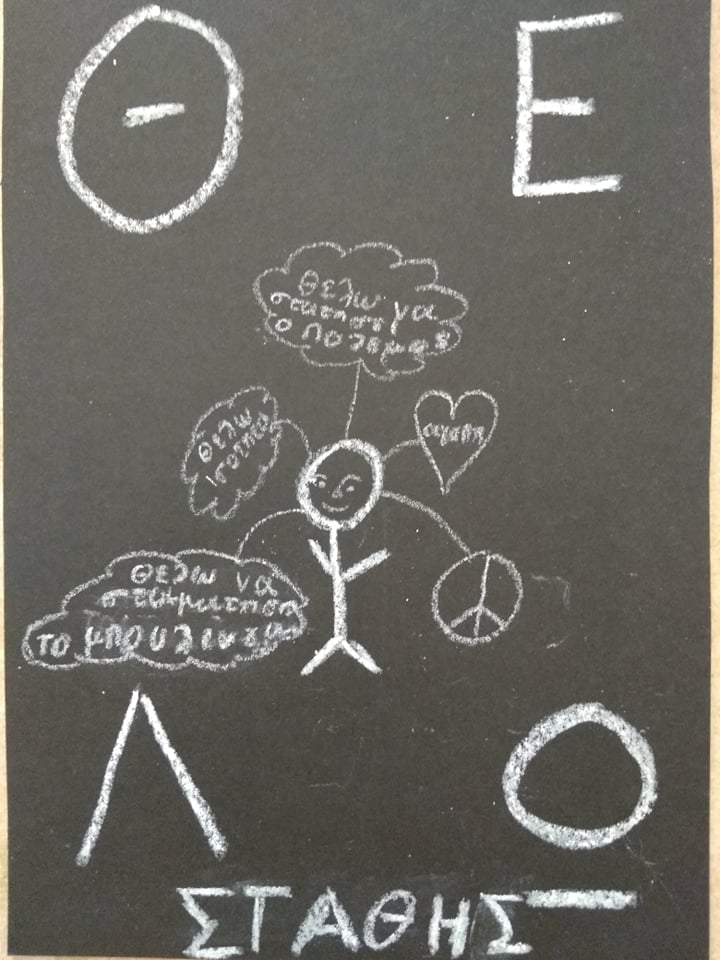 Θ Ε
Θελω
σταματησι να
ο πολεμος
θελω
ισοτητα
αγαπη
Θελω να
σταματηση
το μπουλινγκ
Λ Ω
ΣΤΑΘΗΣ